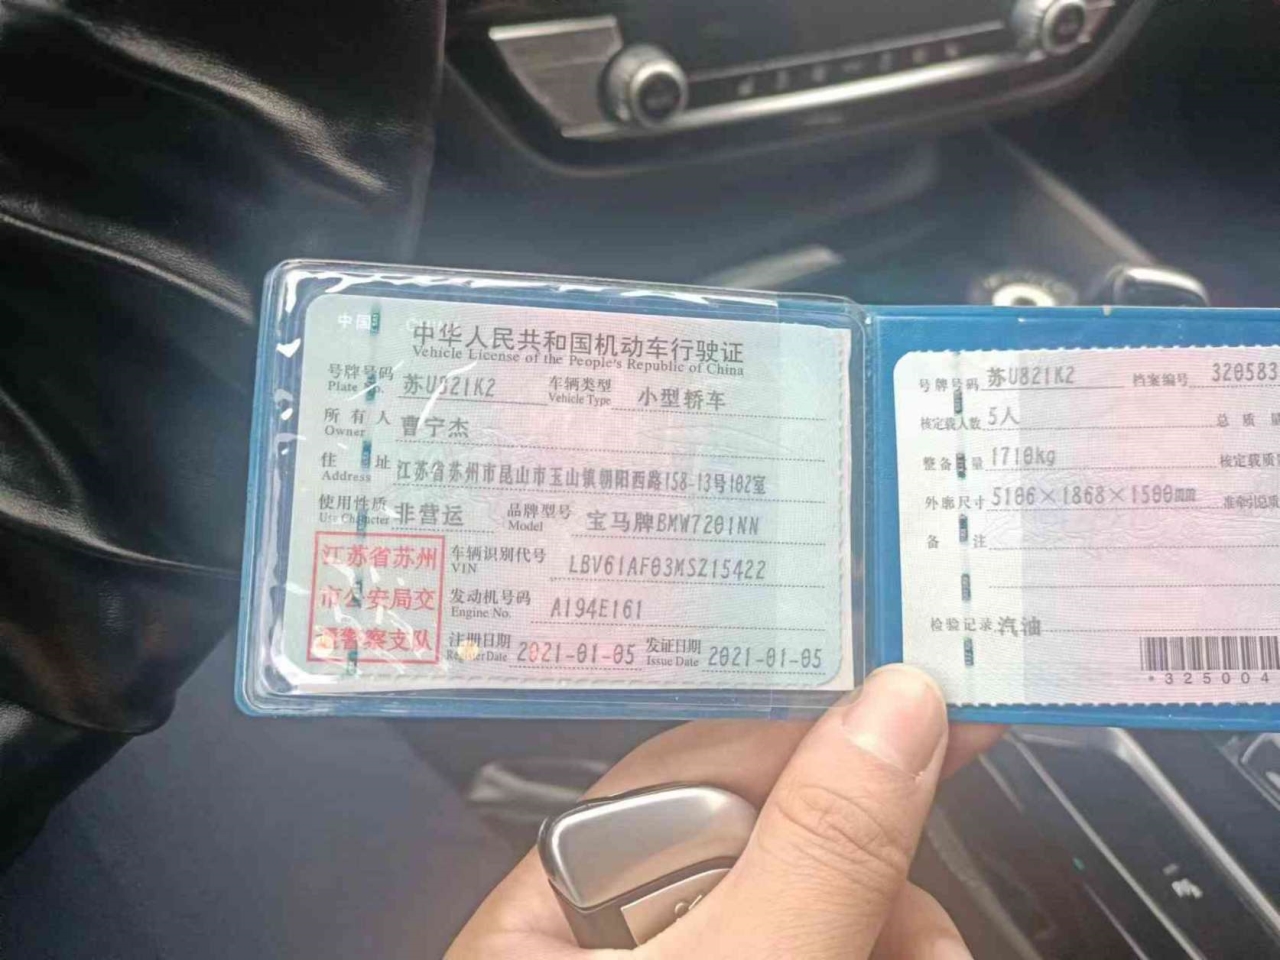 中国
中华人民共和国机动车行驶证
Vehicle License of the People's Republic of China
号牌号码 苏U821K2 车辆类型 小型轿车
Plate No. Vehicle Type
所有人 曹宁杰
Owner
住址 江苏省苏州市昆山市玉山镇朝阳西路158-13号102室
Address
使用性质 非营运 品牌型号 宝马牌BMW7201NN
Use Character Model
江苏省苏州
市公安局交
通警察支队
车辆识别代号 LBV61AF03MSZ15422
VIN
发动机号码 A194E161
Engine No.
注册日期 2021-01-05 发证日期 2021-01-05
Register Date Issue Date
号牌号码 苏U821K2 档案编号 320583
核定载人数 5人 总质量
整备质量 1710kg 核定载质
外廓尺寸 5106×1868×1500mm 准牵引总
备注
检验记录 汽油
*325004